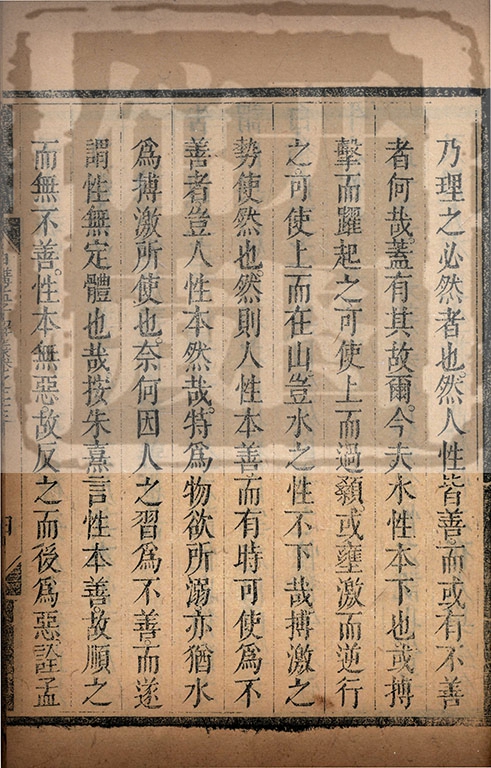 乃理之必然者也。然人性皆善而或有不善
者何哉。蓋有其故爾。今夫水性本下也或搏
擊而躍起之可使上而過顙或壅激而逆行
之。可使上而在山豈水之性不下哉搏激之
勢使然也。然則人性本善而有時可使為不
善者。豈人性本然哉。特為物欲所溺亦猶水
為搏激所使也。奈何因人之習為不善。而遂
謂性無定體也哉按朱熹言性本善。故順之
而無不善。性本無惡故反之而後為惡詮孟